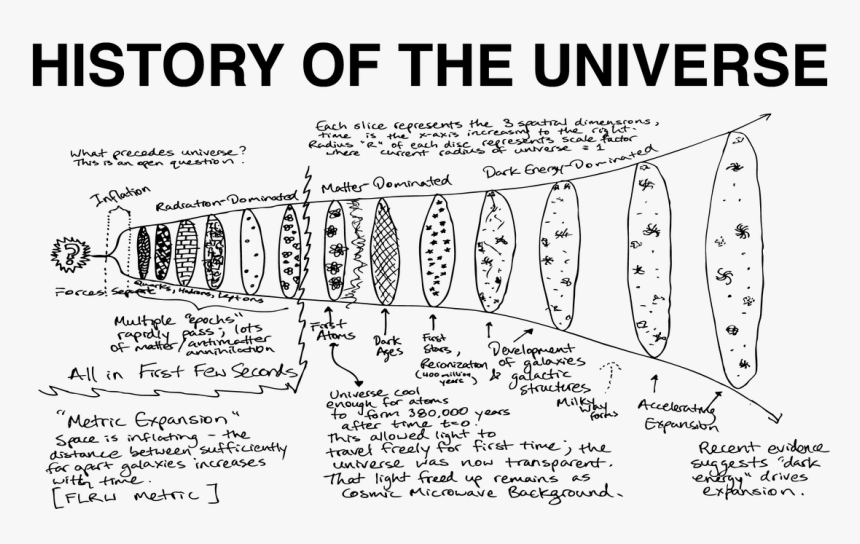 HISTORY OF THE UNIVERSE
Each slice represents the 3 spatial dimensions,
time is the x-axis increasing to the right.
Radius "R" of each disc represents scale factor
where current radius of universe = 1
What precedes universe?
This is an open question.
Inflation
Radiation-Dominated
Matter-Dominated
Dark Energy-Dominated
Forces Separate
Quarks, Hadrons, Leptons
Multiple "epochs"
rapidly pass; lots
of matter/antimatter
annihilation
All in First Few Seconds
First
Atoms
Dark
Ages
First
Stars,
Reionization
(400 million
years)
Development
of galaxies
& galactic
structures
Milky
Way
forms
Accelerating
Expansion
"Metric Expansion"
Space is inflating - the
distance between sufficiently
far apart galaxies increases
with time.
[FLRW metric]
Universe cool
enough for atoms
to form 380,000 years
after time t=0.
This allowed light to
travel freely for first time; the
universe was now transparent.
That light freed up remains as
Cosmic Microwave Background.
Recent evidence
suggests "dark
energy" drives
expansion.